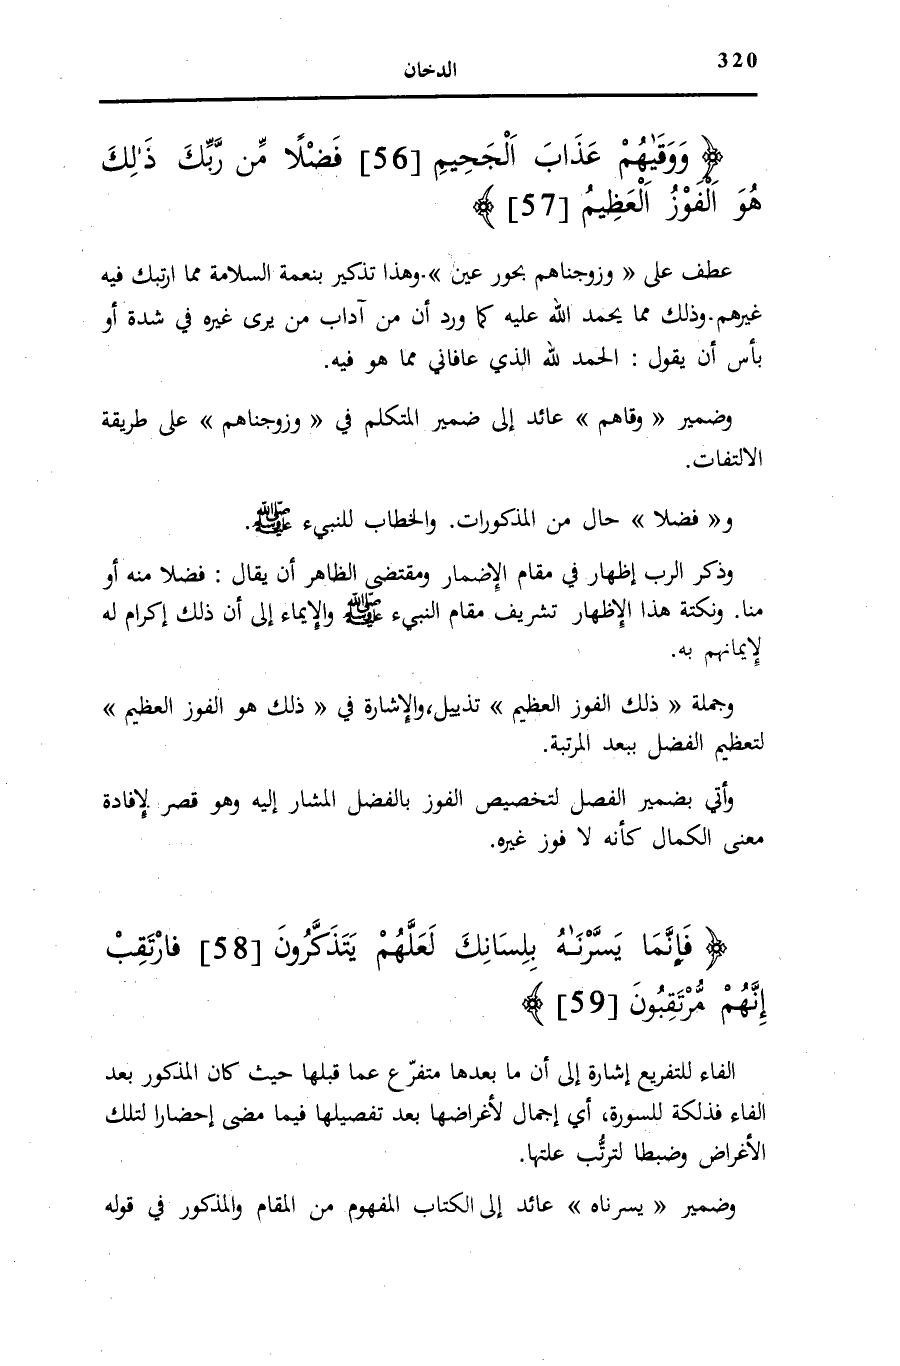 320
الدخان
﴿ وَوَقَىٰهُمْ عَذَابَ ٱلْجَحِيمِ [56] فَضْلًا مِّن رَّبِّكَ ذَٰلِكَ
هُوَ ٱلْفَوْزُ ٱلْعَظِيمُ [57] ﴾
عطف على « وزوجناهم بحور عين ».وهذا تذكير بنعمة السلامة مما ارتبك فيه
غيرهم.وذلك مما يحمد الله عليه كما ورد أن من آداب من يرى غيره في شدة أو
بأس أن يقول : الحمد لله الذي عافاني مما هو فيه.
وضمير « وقاهم » عائد إلى ضمير المتكلم في « وزوجناهم » على طريقة
الالتفات.
و« فضلا » حال من المذكورات. والخطاب للنبيء ﷺ.
وذكر الرب إظهار في مقام الإضمار ومقتضى الظاهر أن يقال : فضلا منه أو
منا. ونكتة هذا الإظهار تشريف مقام النبيء ﷺ والإيماء إلى أن ذلك إكرام له
لإيمانهم به.
وجملة « ذلك الفوز العظيم » تذييل،والإشارة في « ذلك هو الفوز العظيم »
لتعظيم الفضل ببعد المرتبة.
وأتي بضمير الفصل لتخصيص الفوز بالفضل المشار إليه وهو قصر لإفادة
معنى الكمال كأنه لا فوز غيره.
﴿ فَإِنَّمَا يَسَّرْنَـٰهُ بِلِسَانِكَ لَعَلَّهُمْ يَتَذَكَّرُونَ [58] فارْتَقِبْ
إِنَّهُمْ مُّرْتَقِبُونَ [59] ﴾
الفاء للتفريع إشارة إلى أن ما بعدها متفرّع عما قبلها حيث كان المذكور بعد
الفاء فذلكة للسورة، أي إجمال لأغراضها بعد تفصيلها فيما مضى إحضارا لتلك
الأغراض وضبطا لترتُّب علتها.
وضمير « يسرناه » عائد إلى الكتاب المفهوم من المقام والمذكور في قوله